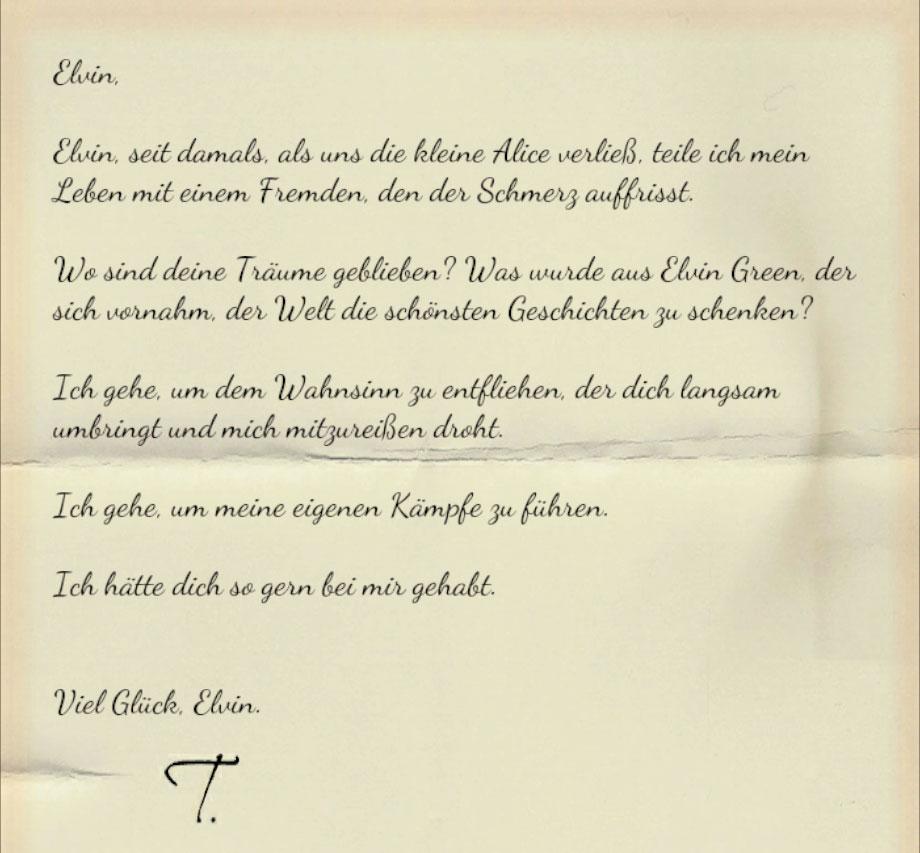 Elvin,
Elvin, seit damals, als uns die kleine Alice verließ, teile ich mein
Leben mit einem Fremden, den der Schmerz auffrisst.
Wo sind deine Träume geblieben? Was wurde aus Elvin Green, der
sich vornahm, der Welt die schönsten Geschichten zu schenken?
Ich gehe, um dem Wahnsinn zu entfliehen, der dich langsam
umbringt und mich mitzureißen droht.
Ich gehe, um meine eigenen Kämpfe zu führen.
Ich hätte dich so gern bei mir gehabt.
Viel Glück, Elvin.
T.